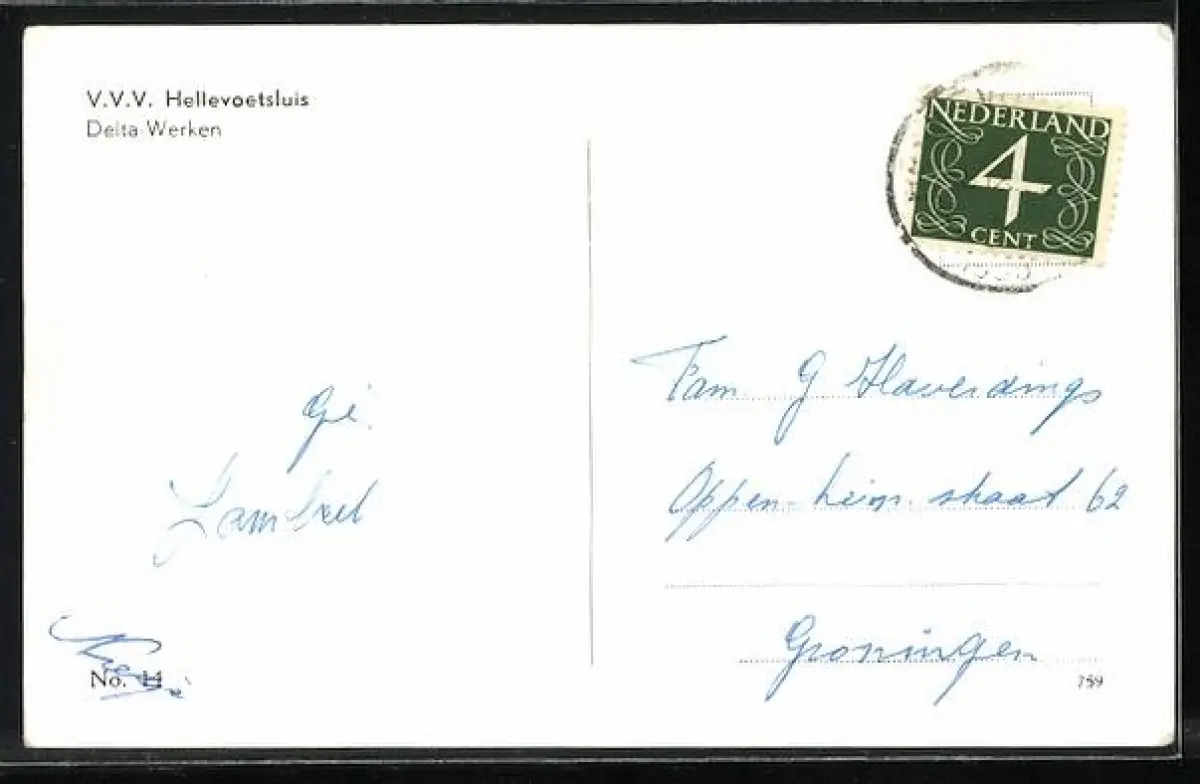 V.V.V. Hellevoetsluis
Delta Werken
NEDERLAND
4
CENT
Gé.
Lambert
No. 14
Fam G Haverdings
Oppen-heim straat 62
Groningen
759